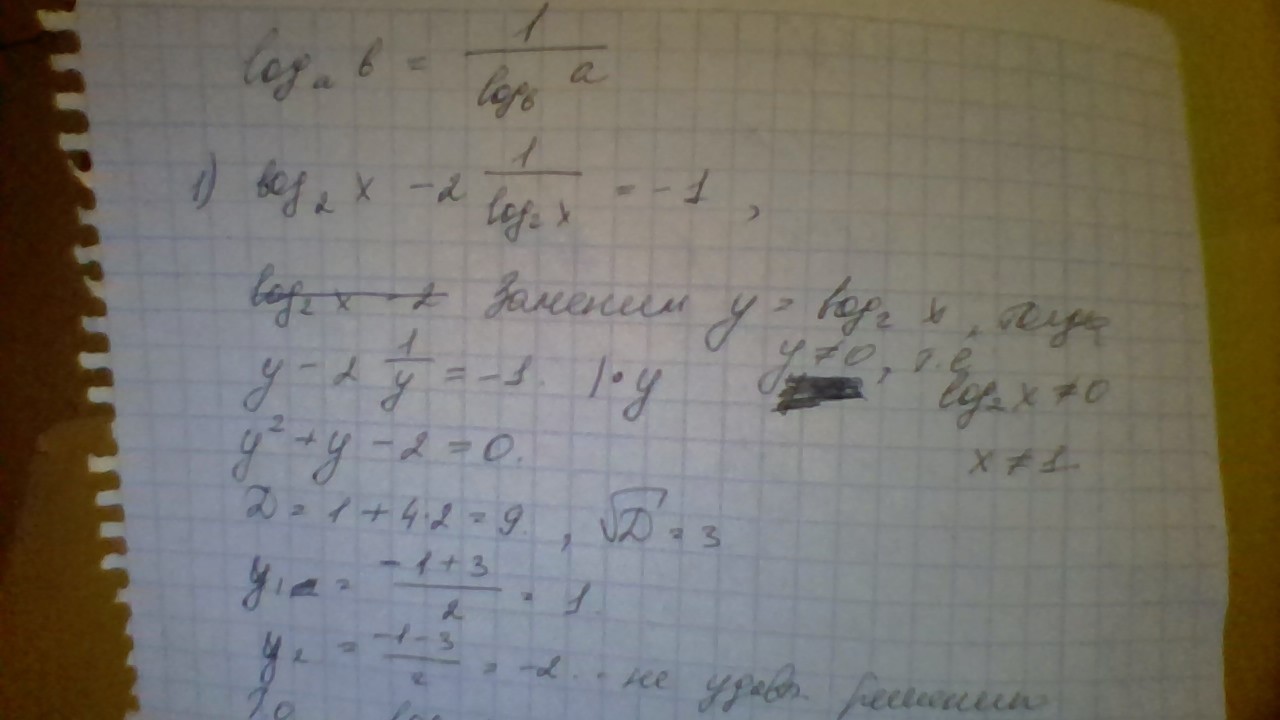 logₐ b = 1 / log_b a
1) log₂ x - 2 1 / log₂ x = -1,
log₂ x - 2 Заменим y = log₂ x, тогда
y - 2 1/y = -1. | · y y ≠ 0, т.е
log₂ x ≠ 0
y² + y - 2 = 0.
x ≠ 1
D = 1 + 4·2 = 9, √D = 3
y₁ = (-1+3) / 2 = 1.
y₂ = (-1-3) / 2 = -2. - не удовл.